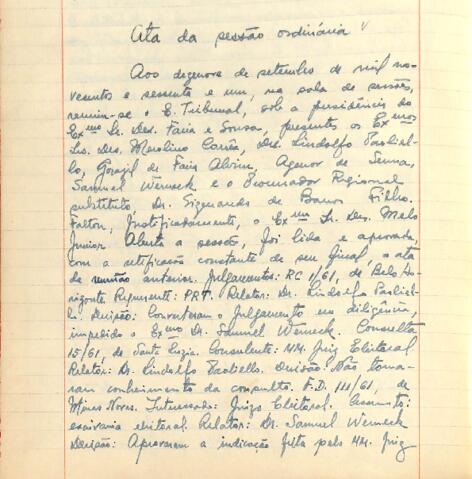 Ata da sessão ordinária
Aos dezenove de setembro de mil no-
vecentos e sessenta e um, na sala de sessões,
reuniu-se o E. Tribunal, sob a presidência do
Exmo Sr. Des. Faria e Sousa, presentes os Exmos
Srs. Des. Merolino Corrêa, Drs. Lindolfo Paoliel-
lo, Gorazil de Faria Alvim, Agenor de Senna,
Samuel Werneck e o Procurador Regional
substituto Dr. Sizenando de Barros Filho.
Faltou, justificadamente, o Exmo Sr. Des. Melo
Junior. Aberta a sessão, foi lida e aprovada
com a retificação constante de seu final, a ata
da reunião anterior. Julgamentos: RC 1/61, de Belo Ho-
rizonte. Requerente: PRT. Relator: Dr. Lindolfo Paoliel-
lo. Decisão: Converteram o julgamento em diligência,
impedido o Exmo Dr. Samuel Werneck. Consulta
15/61, de Santa Luzia. Consulente: MM. Juiz Eleitoral
Relator: Dr. Lindolfo Paoliello. Decisão: Não toma-
ram conhecimento da consulta. F.D. 111/61, de
Minas Novas. Interessado: Juizo Eleitoral. Assunto:
escrivania eleitoral. Relator: Dr. Samuel Werneck
Decisão: Aprovaram a indicação feita pelo MM. Juiz